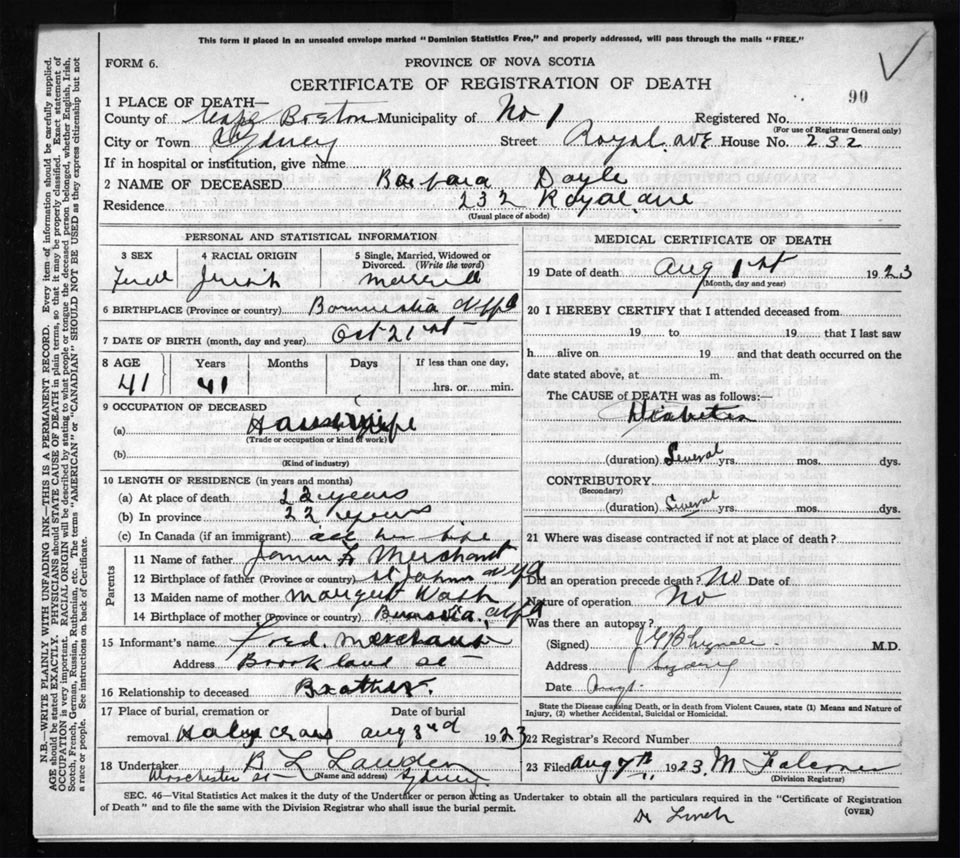 This form if placed in an unsealed envelope marked "Dominion Statistics Free," and properly addressed, will pass through the mails "FREE."
FORM 6.
PROVINCE OF NOVA SCOTIA
CERTIFICATE OF REGISTRATION OF DEATH
90
1 PLACE OF DEATH—
County of Cape Breton Municipality of No 1 Registered No.
(For use of Registrar General only)
City or Town Sydney Street Royal ave House No. 232
If in hospital or institution, give name
2 NAME OF DECEASED Barbara Doyle
Residence 232 Royal ave
(Usual place of abode)
PERSONAL AND STATISTICAL INFORMATION
3 SEX 4 RACIAL ORIGIN 5 Single, Married, Widowed or Divorced. (Write the word)
Irish
6 BIRTHPLACE (Province or country)
7 DATE OF BIRTH (month, day and year) Oct 21st
8 AGE Years Months Days If less than one day,
41 41 hrs. or min.
9 OCCUPATION OF DECEASED
(a) Housewife
(Trade or occupation or kind of work)
(b)
(Kind of industry)
10 LENGTH OF RESIDENCE (in years and months)
(a) At place of death 22 years
(b) In province 22 years
(c) In Canada (if an immigrant) all her life
Parents
11 Name of father Merchant
12 Birthplace of father (Province or country) St Johns
13 Maiden name of mother Margaret
14 Birthplace of mother (Province or country)
15 Informant's name Fred Merchant
Address Brookland st
16 Relationship to deceased Brother.
17 Place of burial, cremation or removal Date of burial
Holy Cross aug 3rd 1923
18 Undertaker B L
(Name and address) Dorchester st Sydney
MEDICAL CERTIFICATE OF DEATH
19 Date of death Aug 1st 1923
(Month, day and year)
20 I HEREBY CERTIFY that I attended deceased from
19 to 19 that I last saw
h alive on 19 and that death occurred on the
date stated above, at m.
The CAUSE of DEATH was as follows:
Diabetes
(duration) Several yrs. mos. dys.
CONTRIBUTORY
(Secondary)
(duration) Several yrs. mos. dys.
21 Where was disease contracted if not at place of death?
Did an operation precede death? No Date of
Nature of operation No
Was there an autopsy?
(Signed) M.D.
Address Sydney
Date Aug
State the Disease causing Death, or in death from Violent Causes, state (1) Means and Nature of
Injury, (2) whether Accidental, Suicidal or Homicidal.
22 Registrar's Record Number
23 Filed aug 7th 1923, M
(Division Registrar)
SEC. 46—Vital Statistics Act makes it the duty of the Undertaker or person acting as Undertaker to obtain all the particulars required in the "Certificate of Registration
of Death" and to file the same with the Division Registrar who shall issue the burial permit.
(OVER)
Dr Lynch
N.B.—WRITE PLAINLY WITH UNFADING INK—THIS IS A PERMANENT RECORD. Every item of information should be carefully supplied.
AGE should be stated EXACTLY. PHYSICIANS should STATE CAUSE OF DEATH in plain terms, so that it may be properly classified. Exact statement of
OCCUPATION is very important. RACIAL ORIGIN will be described by stating to what people or tongue the deceased person belonged, whether English, Irish,
Scotch, French, German, Russian, Ruthenian, etc. The terms "AMERICAN" or "CANADIAN" SHOULD NOT BE USED as they express citizenship but not
a race or people. See instructions on back of Certificate.